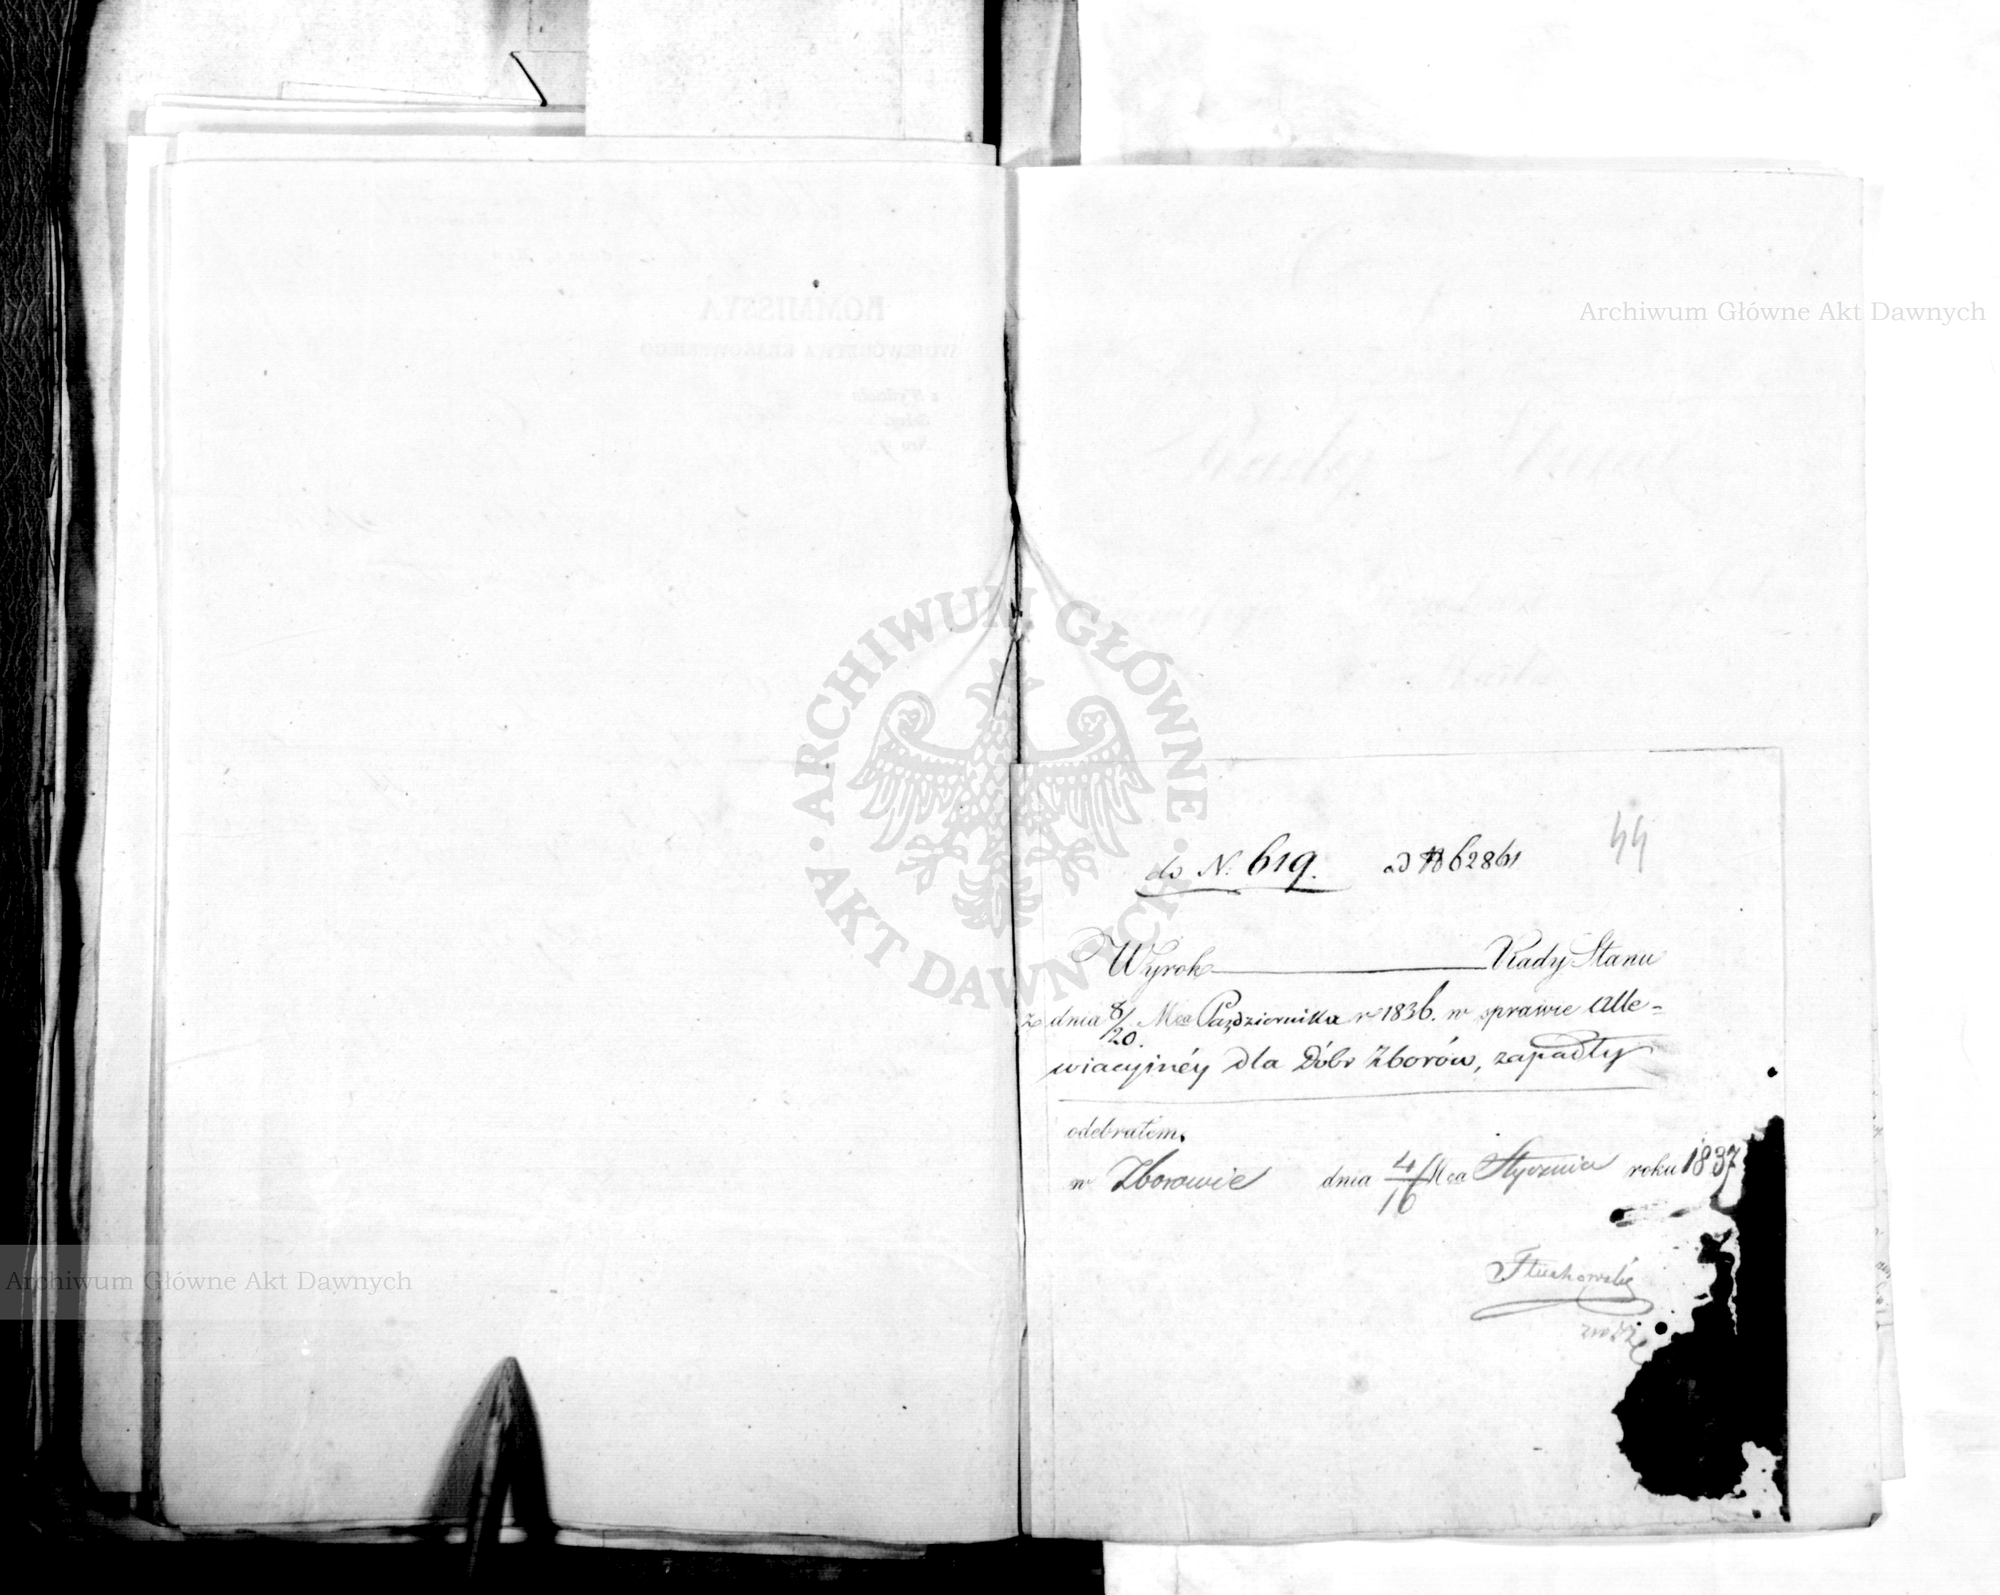 KOMMISSYA
WOJEWÓDZTWA KRAKOWSKIEGO
Archiwum Główne Akt Dawnych
ARCHIWUM GŁÓWNE · AKT DAWNYCH ·
44
do N. 619. ad 62861
Wyrok Rady Stanu
z dnia 8/20. Mca Października r 1836. w sprawie Alle-
wiacyjnéy dla Dóbr Zborów, zapadły
odebrałem.
w Zborowie dnia 4/16 Mca Stycznia roku 1837
Archiwum Główne Akt Dawnych